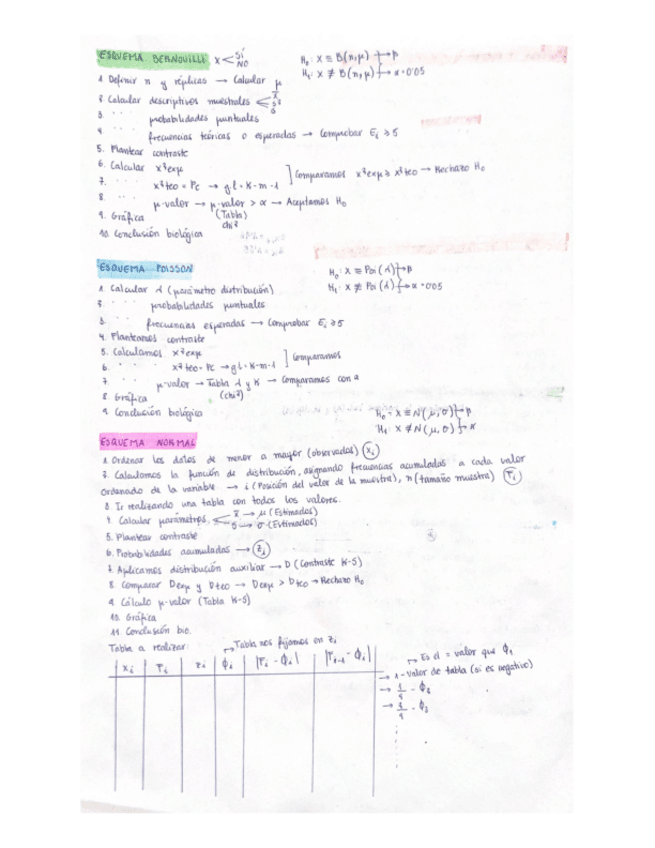 ESQUEMA BERNOUILLI X < SÍ NO
H₀: X ≡ B(n,p) → p
H₁: X ≢ B(n,p) → α=0'05
1. Definir n y réplicas → Calcular p
2. Calcular descriptivos muestrales < x̄ s² s
3. " " probabilidades puntuales
4. " " frecuencias teóricas o esperadas → Comprobar Eᵢ ≥ 5
5. Plantear contraste
6. Calcular x²exp
7. " " x²teo = Pc → g.l = K-m-1 ] Comparamos x²exp ≥ x²teo → Rechazo H₀
(Tabla) chi²
8. " " p-valor → p-valor > α → Aceptamos H₀
9. Gráfica
10. Conclusión biológica
ESQUEMA POISSON
H₀: X ≡ Poi(λ) → p
H₁: X ≢ Poi(λ) → α=0'05
1. Calcular λ (parámetro distribución)
2. " " probabilidades puntuales
3. " " frecuencias esperadas → Comprobar Eᵢ ≥ 5
4. Planteamos contraste
5. Calculamos x²exp
6. " " x²teo = Pc → gl = K-m-1 ] Comparamos
7. " " p-valor → Tabla λ y K → Comparamos con α
(chi²)
8. Gráfica
9. Conclusión biológica
H₀: X ≡ N(μ,σ) → p
H₁: X ≢ N(μ,σ) → α
ESQUEMA NORMAL
1. Ordenar los datos de menor a mayor (observados) (xᵢ)
2. Calculamos la función de distribución, asignando frecuencias acumuladas a cada valor
ordenado de la variable → i (Posición del valor de la muestra), n (tamaño muestra) (Fᵢ)
3. Ir realizando una tabla con todos los valores.
4. Calcular parámetros < x̄ → μ (Estimados)
s → σ (Estimados)
5. Plantear contraste
6. Probabilidades acumuladas → (zᵢ)
7. Aplicamos distribución auxiliar → D (Contraste K-S)
8. Comparar Dexp y Dteo → Dexp > Dteo → Rechazo H₀
9. Cálculo p-valor (Tabla K-S)
10. Gráfica
11. Conclusión bio.
Tabla a realizar: → Tabla nos fijamos en zᵢ
xᵢ | Fᵢ | zᵢ | ϕᵢ | |Fᵢ - ϕᵢ| | |Fᵢ₋₁ - ϕᵢ|
→ Es el = valor que ϕ₁
→ 1 - valor de tabla (si es negativo)